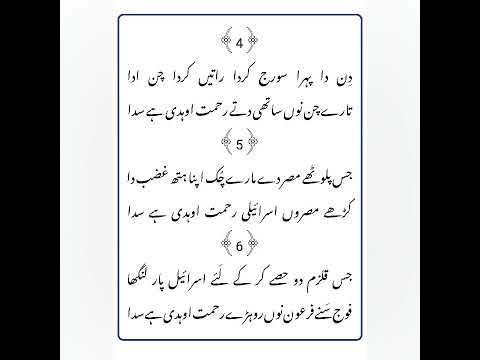 4
دِن دا پہرا سورج کردا راتیں کردا چن ادا
تارے چن نوں ساتھی دتے رحمت اوہدی ہے سدا
5
جس پلوٹھے مصر دے مارے چُک اپنا ہتھ غضب دا
کڑھے مصروں اسرائیلی رحمت اوہدی ہے سدا
6
جس قلزم دو حصے کر کے لَئے اسرائیل پار لنگھا
فوج سَنے فرعون نوں روہڑے رحمت اوہدی ہے سدا